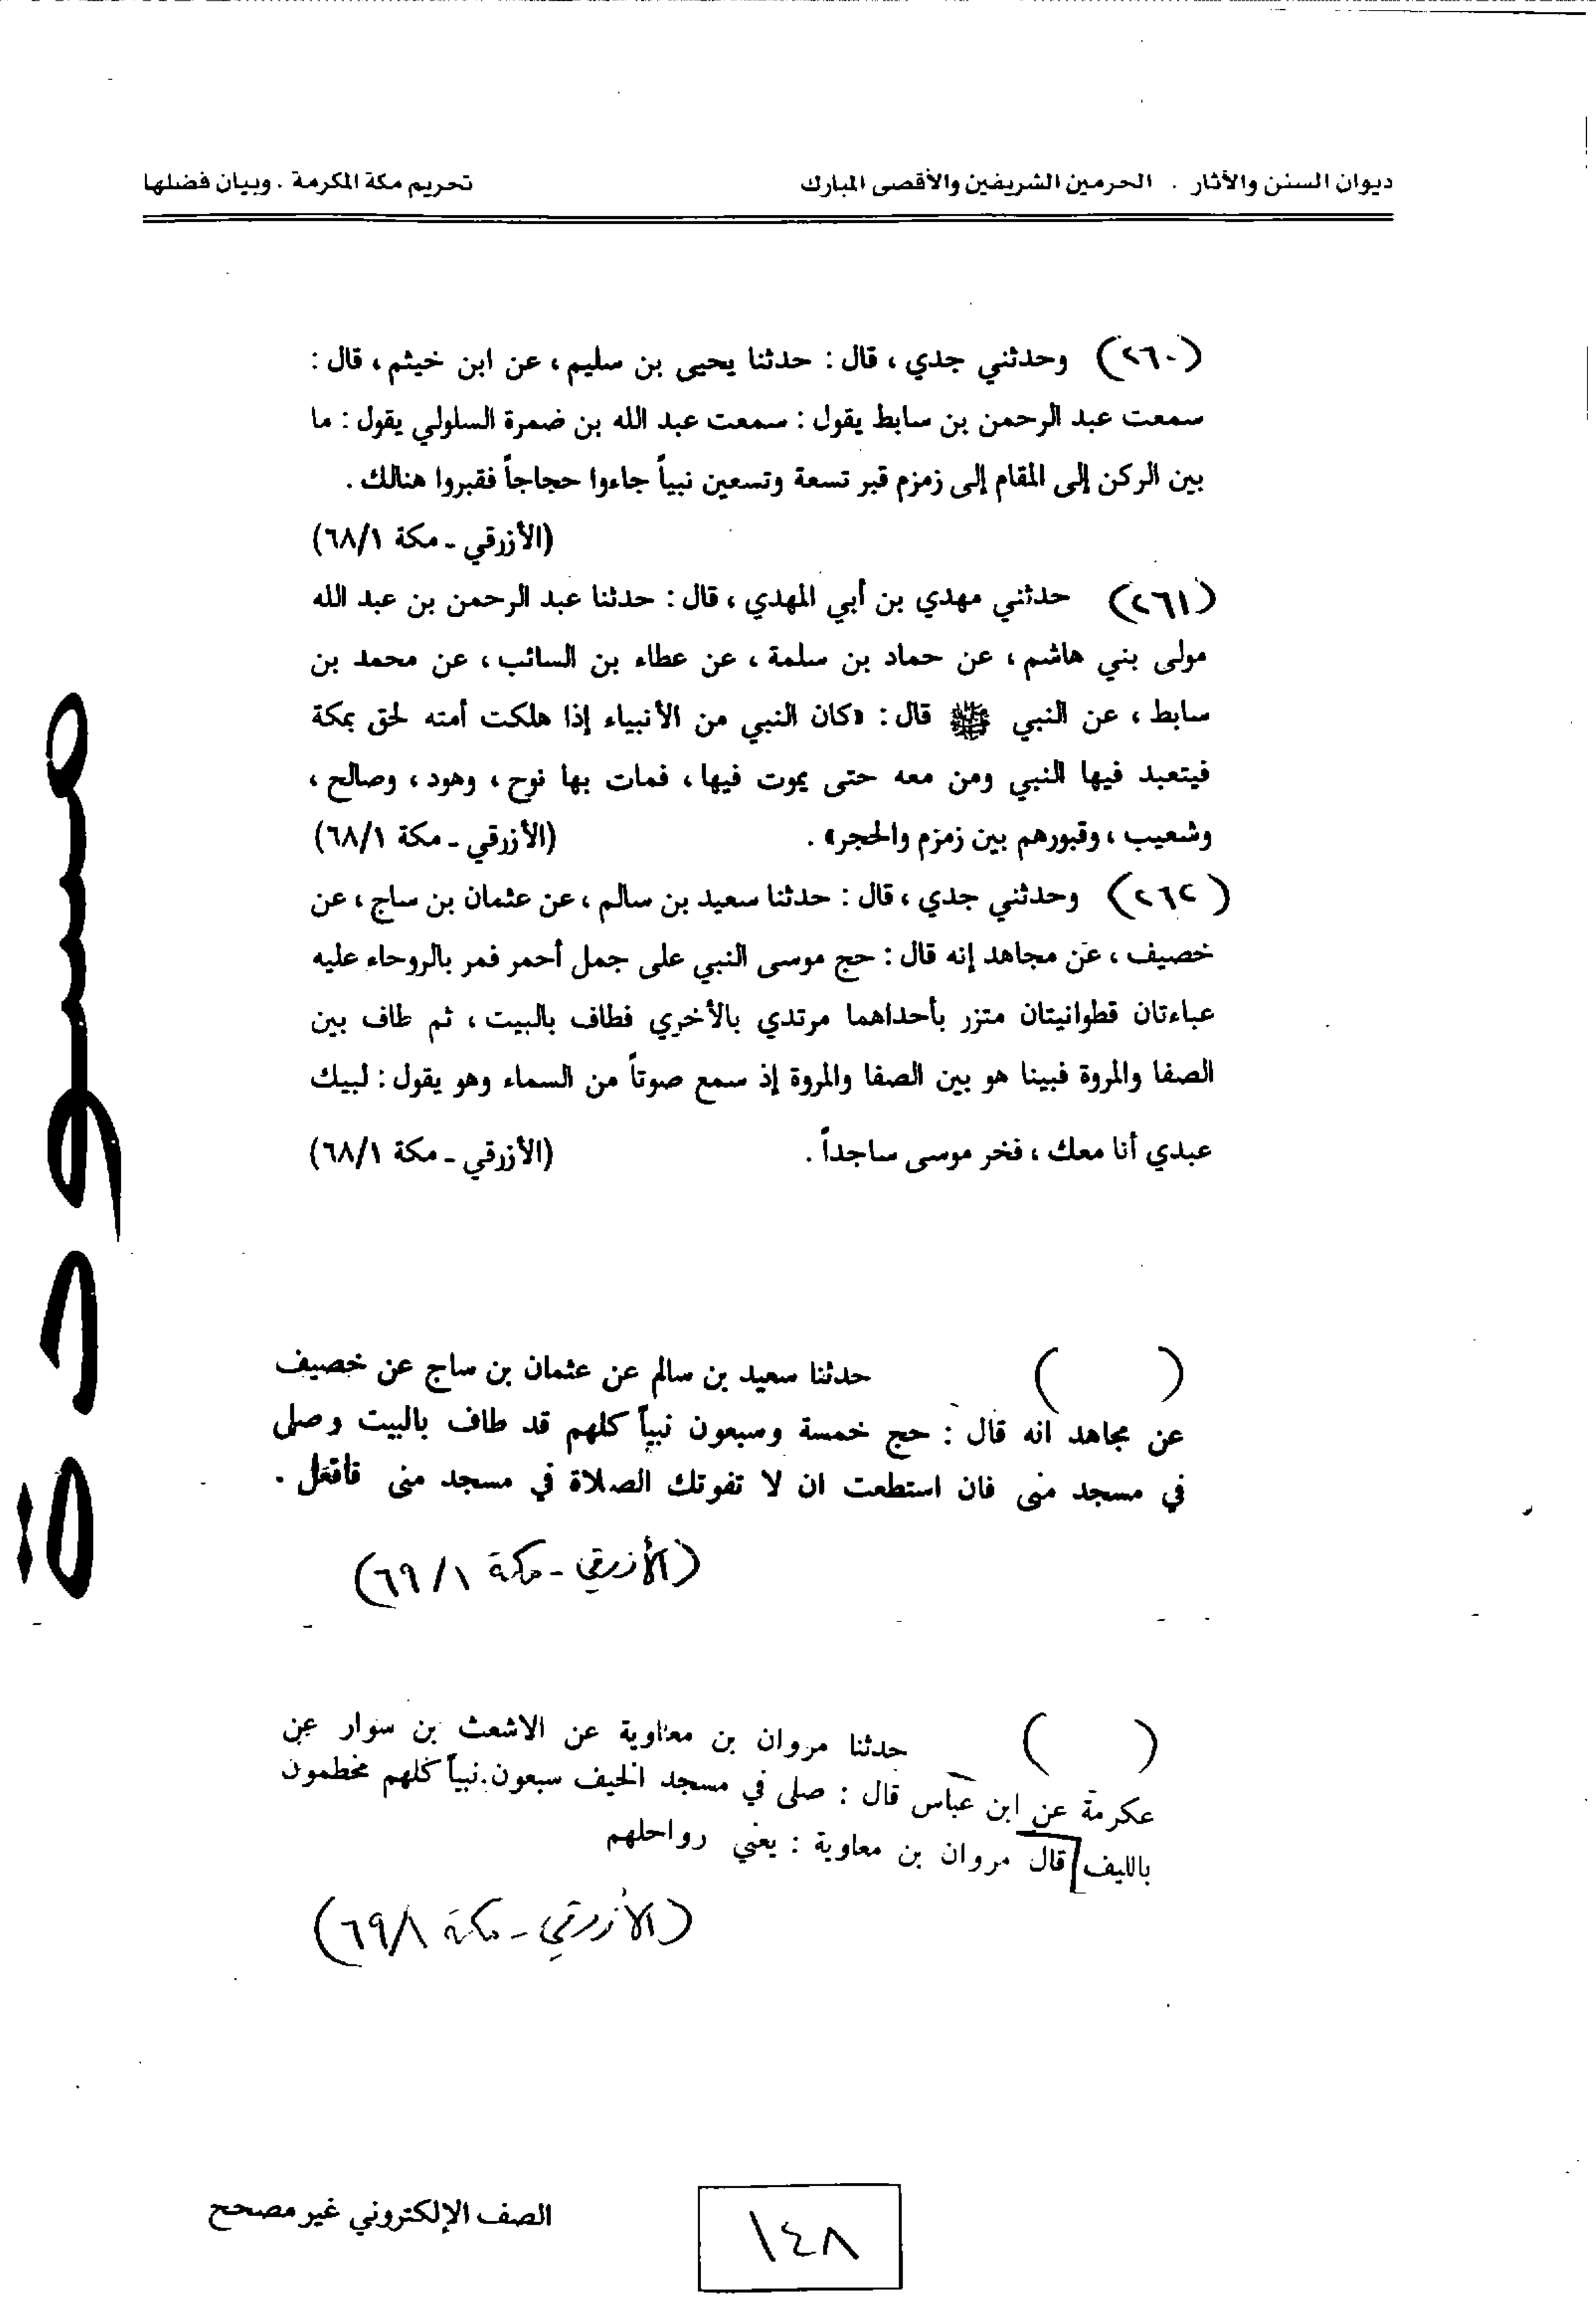 ديوان السنن والآثار . الحرمين الشريفين والأقصى المبارك
تحريم مكة المكرمة . وبيان فضلها
(٢٦٠) وحدثني جدي ، قال : حدثنا يحيى بن سليم ، عن ابن خيثم ، قال :
سمعت عبد الرحمن بن سابط يقول : سمعت عبد الله بن ضمرة السلولي يقول : ما
بين الركن إلى المقام إلى زمزم قبر تسعة وتسعين نبياً جاءوا حجاجاً فقبروا هنالك .
(الأزرقي ـ مكة ٦٨/١)
(٢٦١) حدثني مهدي بن أبي المهدي ، قال : حدثنا عبد الرحمن بن عبد الله
مولى بني هاشم ، عن حماد بن سلمة ، عن عطاء بن السائب ، عن محمد بن
سابط ، عن النبي ﷺ قال : «كان النبي من الأنبياء إذا هلكت أمته لحق بمكة
فيتعبد فيها النبي ومن معه حتى يموت فيها ، فمات بها نوح ، وهود ، وصالح ،
وشعيب ، وقبورهم بين زمزم والحجر» . (الأزرقي ـ مكة ٦٨/١)
(٢٦٢) وحدثني جدي ، قال : حدثنا سعيد بن سالم ، عن عثمان بن ساج ، عن
خصيف ، عن مجاهد إنه قال : حج موسى النبي على جمل أحمر فمر بالروحاء عليه
عباءتان قطوانيتان متزر بأحداهما مرتدي بالأخري فطاف بالبيت ، ثم طاف بين
الصفا والمروة فبينا هو بين الصفا والمروة إذ سمع صوتاً من السماء وهو يقول : لبيك
عبدي أنا معك ، فخر موسى ساجداً . (الأزرقي ـ مكة ٦٨/١)
( ) حدثنا سعيد بن سالم عن عثمان بن ساج عن خصيف
عن مجاهد انه قال : حج خمسة وسبعون نبياً كلهم قد طاف بالبيت وصلى
في مسجد منى فان استطعت ان لا تفوتك الصلاة في مسجد منى فافعل .
(الأزرقي - مكة ٦٩/١)
( ) حدثنا مروان بن معاوية عن الاشعث بن سوار عن
عكرمة عن ابن عباس قال : صلى في مسجد الخيف سبعون نبياً كلهم مخطمون
بالليف قال مروان بن معاوية : يعني رواحلهم
(الأزرقي - مكة ٦٩/١)
مسودة
١٤٨
الصف الإلكتروني غير مصحح